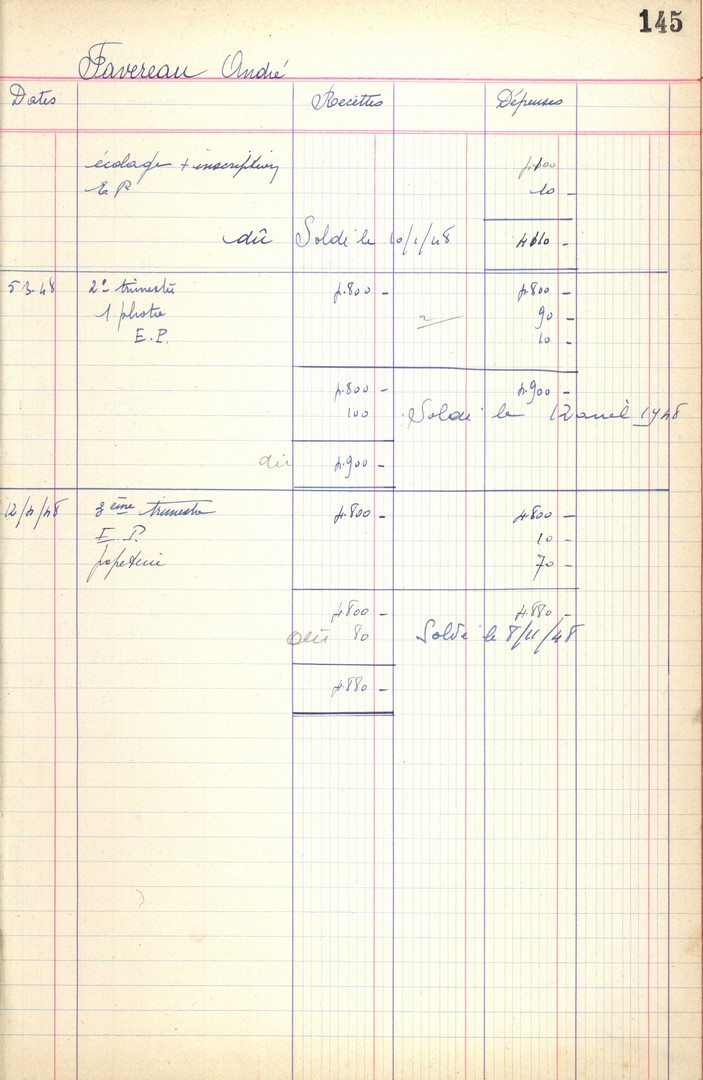 145
Favereau André
Dates Recettes Dépenses
écolage + inscription
E.P 10 -
dû Soldé le 10/1/48
5 3. 48 2e trimestre 4.800 - 4.800 -
1 photo 90 -
E.P. 10 -
4.800 - 4.900 -
100 Soldé le 12 avril 1948
dû 4.900 -
12/4/48 3ème trimestre 4.800 - 4.800 -
E.P. 10 -
papeterie 70 -
4.800 - 4.880 -
dû 80 Soldé le 8/11/48
4.880 -